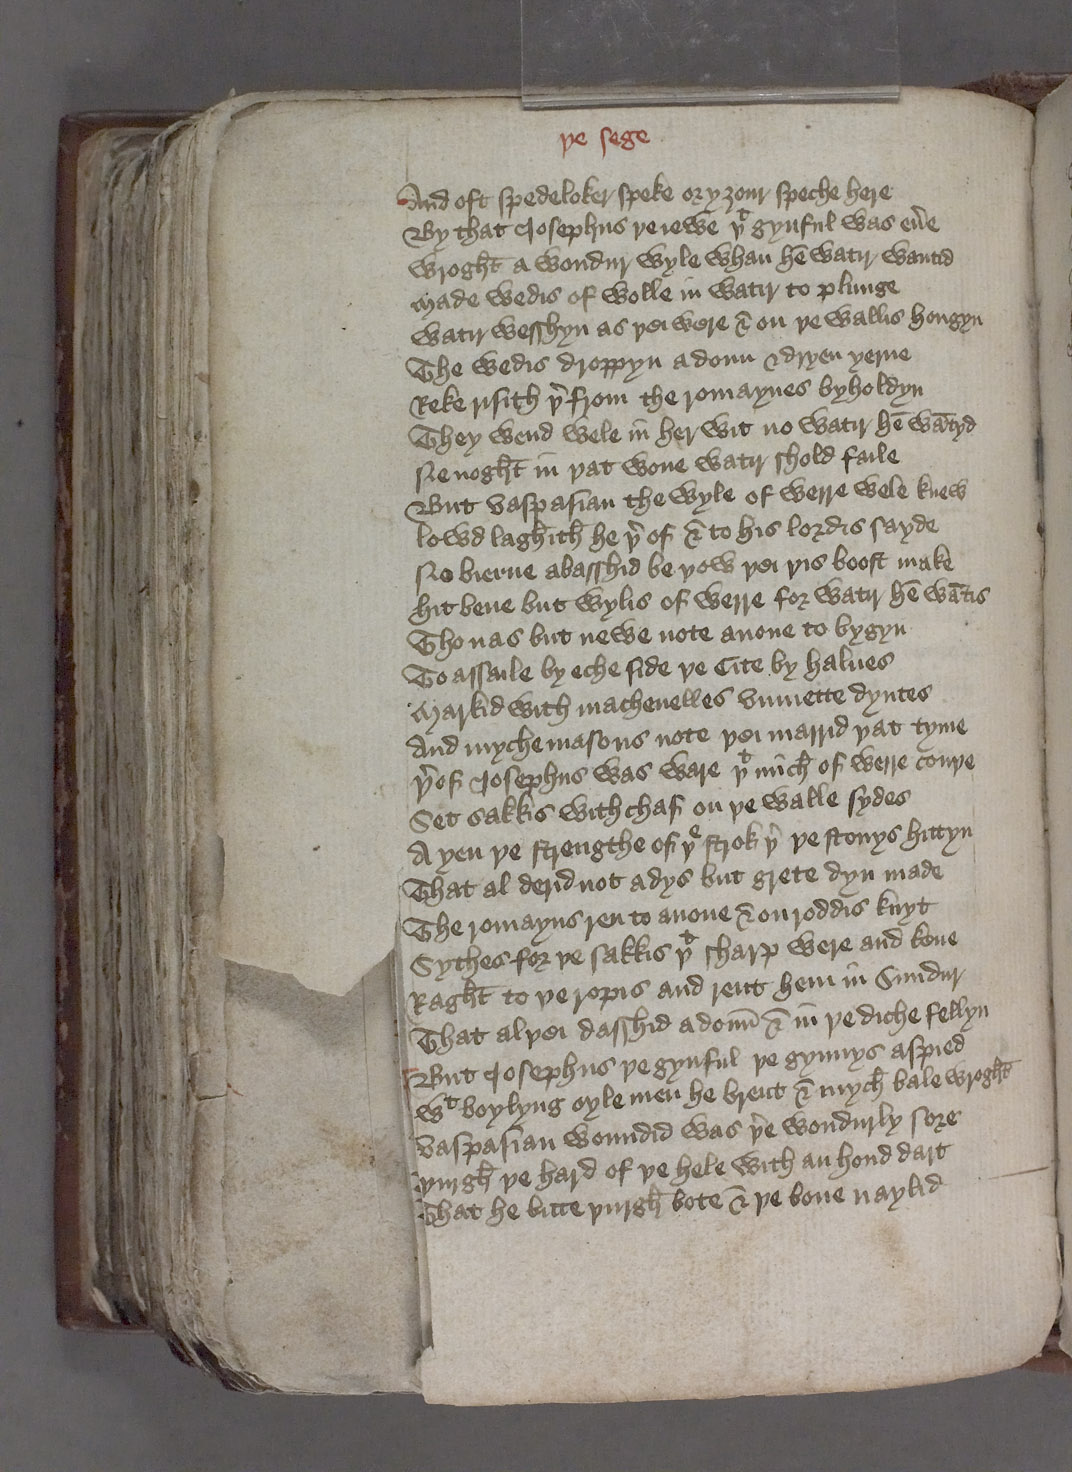 þe sege
And oft spedeloker speke or y ȝour speche here
By that Josephus þe iewe þᵗ gynful was eũe
wroght a wondur wyle whan hē watir wantid
Made wedis of wolle in watir to plunge
watir wesshyn as þei were & on þe wallis hongyn
The wedis droppyn adoun & dryen yerne
Reke risith þ̉ from the romaynes byholdyn
They wend wele in her wit no watir hē wātyd
Ne noght in þat wone watir shold faile
But vaspasian the wyle of werre wele knew
lowd laghith he þ̉ of & to his lordis sayde
No bierne abasshid be þow þei þis boost make
hit bene but wylis of werre for watir hē wātis
Tho nas but newe note anone to bygyn
To assaile by eche side þe Cite by halues
Markid with machenelles vnmette dyntes
And myche masons note þei marrid þat tyme
þ̉of Josephus was ware þᵗ mich of werre couþe
Set sakkis with chaf on þe walle sydes
Ayen þe strengthe of þᵉ strok þ̉ þe stonys hittyn
That al derid not a dys but grete dyn made
The romayns ren to anone & on roddis knyt
Sythes for þe sakkis þᵗ sharp were and kene
Raght to þe ropis and rent hem in Sundur
That al þei dasshid adoun̄ & in þe diche fellyn
But Josephus þe gynful þe gynnys aspied
wᵗ boylyng oyle men he brent & mych bale wroght
vaspasian woundid was þ̉e wondurly sore
þurgh þe hard of þe hele with an hond dart
That he bitte þurgh bote & þe bone naylid